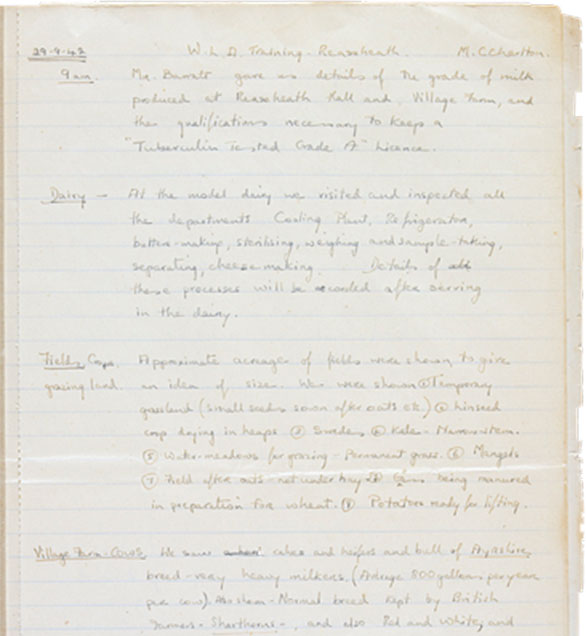 29-9-42 W.L.A. Training - Reaseheath. M. C Cherlton.
9am. Mr. Barratt gave us details of the grade of milk
produced at Reaseheath Hall and, Village Farm, and
the qualifications necessary to keep a
"Tuberculin Tested Grade A" licence.
Dairy — At the model dairy we visited and inspected all
the departments Cooling Plant, Refrigerator,
butter-making, sterilising, weighing and sample-taking,
separating, cheese making. Details of all
these processes will be recorded after serving
in the dairy.
Fields, Crops, Approximate acreages of fields were shown, to give
grazing land. an idea of size. We were shown ① Temporary
grassland (small seeds sown after oats etc.) ② Linseed
crop drying in heaps ③ Swedes ④ Kale - Narrowstem.
⑤ Water-meadows for grazing - Permanent grass. ⑥ Mangels
⑦ Field after oats - not under hay being manured
in preparation for wheat. ⑧ Potatoes ready for lifting.
Village Farm - Cows. We saw calves and heifers and bull of Ayrshire
breed - very heavy milkers. (Average 800 gallons per year
per cow) Normal breed kept by British
farmers - Shorthorns -, and also Red and White, and